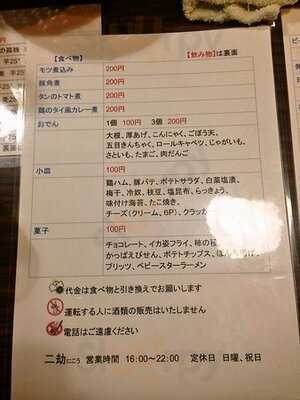 【食べ物】 【飲み物】は裏面
モツ煮込み 200円
豚角煮 200円
タンのトマト煮 200円
鶏のタイ風カレー煮 200円
おでん 1個 100円 3個 200円
大根、厚あげ、こんにゃく、ごぼう天、
五目きんちゃく、ロールキャベツ、じゃがいも、
さといも、たまご、肉だんご
小皿 100円
鶏ハム、豚パテ、ポテトサラダ、白菜塩漬、
梅干、冷奴、枝豆、塩昆布、らっきょう、
味付け海苔、たこ焼き、
チーズ（クリーム、6P）、クラッカー
菓子 100円
チョコレート、イカ姿フライ、柿の種、
かっぱえびせん、ポテトチップス、
プリッツ、ベビースターラーメン
代金は食べ物と引き換えでお願いします
運転する人に酒類の販売はいたしません
電話はご遠慮ください
二劫にこう 営業時間 16:00～22:00 定休日 日曜、祝日